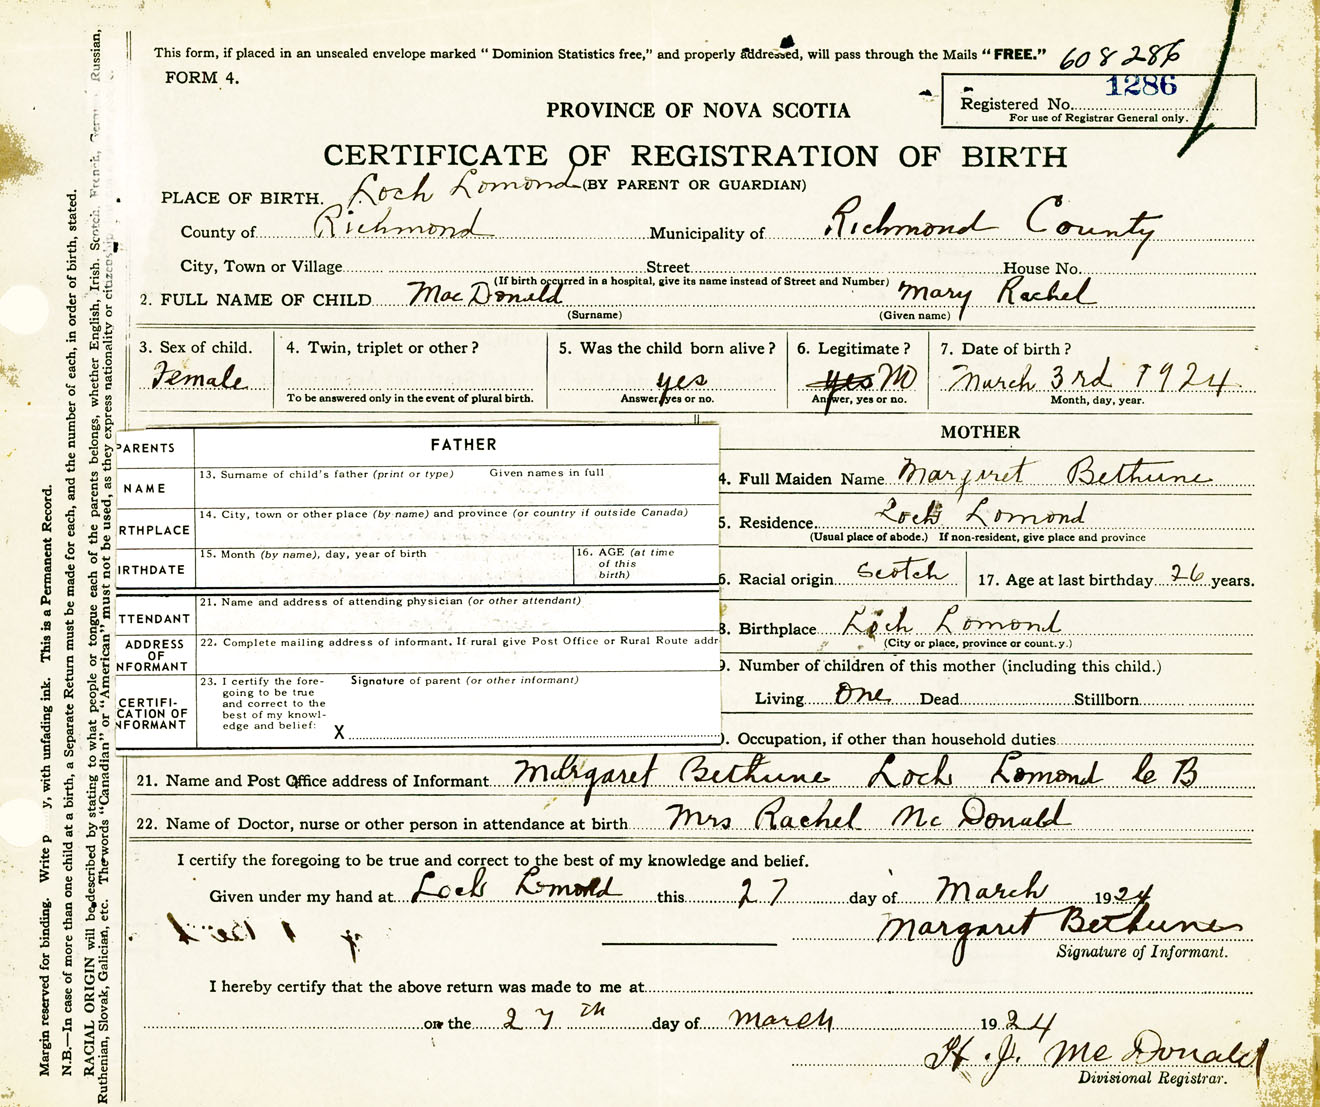 This form, if placed in an unsealed envelope marked "Dominion Statistics free," and properly addressed, will pass through the Mails "FREE."
608286
FORM 4.
1286
Registered No.
For use of Registrar General only.
PROVINCE OF NOVA SCOTIA
CERTIFICATE OF REGISTRATION OF BIRTH
(BY PARENT OR GUARDIAN)
PLACE OF BIRTH. Loch Lomond
County of Richmond Municipality of Richmond County
City, Town or Village Street House No.
(If birth occurred in a hospital, give its name instead of Street and Number)
2. FULL NAME OF CHILD MacDonald Mary Rachel
(Surname) (Given name)
3. Sex of child. 4. Twin, triplet or other? 5. Was the child born alive? 6. Legitimate? 7. Date of birth?
Female yes yes No March 3rd 1924
To be answered only in the event of plural birth. Answer, yes or no. Answer, yes or no. Month, day, year.
PARENTS FATHER
NAME 13. Surname of child's father (print or type) Given names in full
RTHPLACE 14. City, town or other place (by name) and province (or country if outside Canada)
IRTHDATE 15. Month (by name), day, year of birth 16. AGE (at time of this birth)
TTENDANT 21. Name and address of attending physician (or other attendant)
ADDRESS OF NFORMANT 22. Complete mailing address of informant. If rural give Post Office or Rural Route addr
CERTIFI-
CATION OF
NFORMANT
23. I certify the fore-
going to be true
and correct to the
best of my knowl-
edge and belief:
Signature of parent (or other informant)
X
MOTHER
4. Full Maiden Name Margaret Bethune
5. Residence Loch Lomond
(Usual place of abode.) If non-resident, give place and province
6. Racial origin Scotch 17. Age at last birthday 26 years.
8. Birthplace Loch Lomond
(City or place, province or county.)
9. Number of children of this mother (including this child.)
Living One Dead Stillborn
0. Occupation, if other than household duties
21. Name and Post Office address of Informant Margaret Bethune Loch Lomond C B
22. Name of Doctor, nurse or other person in attendance at birth Mrs Rachel McDonald
I certify the foregoing to be true and correct to the best of my knowledge and belief.
Given under my hand at Loch Lomond this 27 day of March 1924
Margaret Bethune
Signature of Informant.
I hereby certify that the above return was made to me at
on the 27th day of March 1924
H. J. McDonald
Divisional Registrar.
Margin reserved for binding. Write p y, with unfading ink. This is a Permanent Record.
N.B.—In case of more than one child at a birth, a Separate Return must be made for each, and the number of each, in order of birth, stated.
RACIAL ORIGIN will be described by stating to what people or tongue each of the parents belongs, whether English, Irish, Scotch, French, German, Russian,
Ruthenian, Slovak, Galician, etc. The words "Canadian" or "American" must not be used, as they express nationality or citizenship.